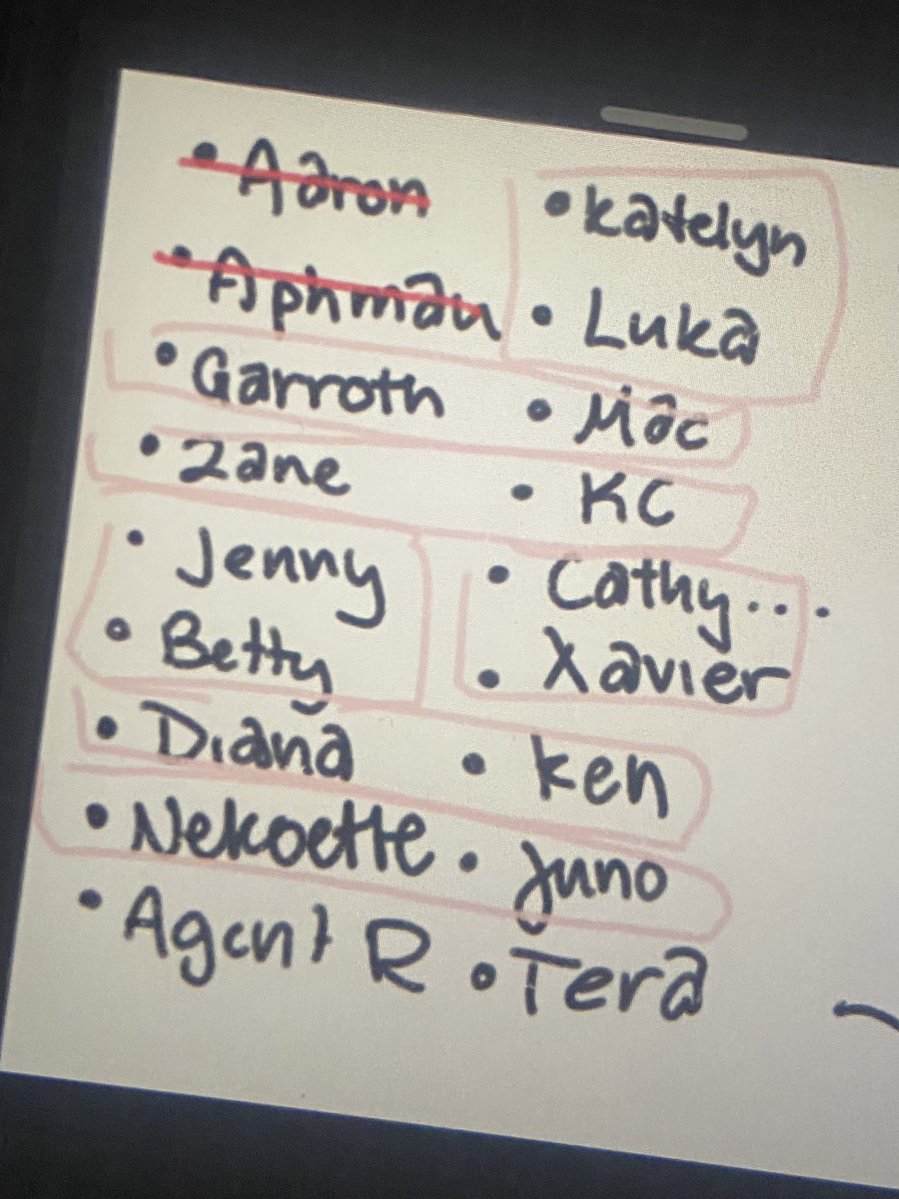 • Aaron
• Aphmau
• Garroth
• Zane
• Jenny
• Betty
• Diana
• Nekoette
• Agent R
• Katelyn
• Luka
• Mac
• KC
• Cathy...
• Xavier
• Ken
• Juno
• Tera